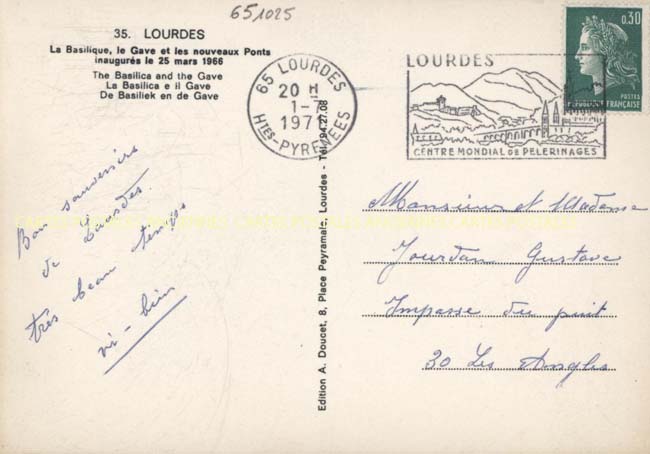 651025
35. LOURDES
La Basilique, le Gave et les nouveaux Ponts
inaugurés le 25 mars 1966
The Basilica and the Gave
La Basilica e il Gave
De Basiliek en de Gave
65 LOURDES
20 H
1-7
197
HTES-PYRENEES
LOURDES
CENTRE MONDIAL DE PÈLERINAGES
0,30
POSTES
REPUBLIQUE FRANÇAISE
Edition A. Doucet, 8, Place Peyramale, Lourdes - Tél. 94.27.08
Bons souvenirs
de Lourdes
très beau temps
Monsieur et Madame
Jourdan Gustave
Impasse du puit
30 Les Angles